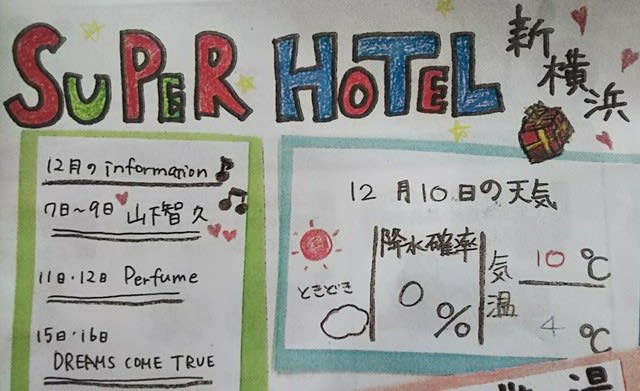 SUPER HOTEL
新横浜
12月のinformation
7日〜9日 山下智久
11日・12日 Perfume
15日・16日
DREAMS COME TRUE
12月10日の天気
ときどき
降水確率
0%
気温
10℃
4℃